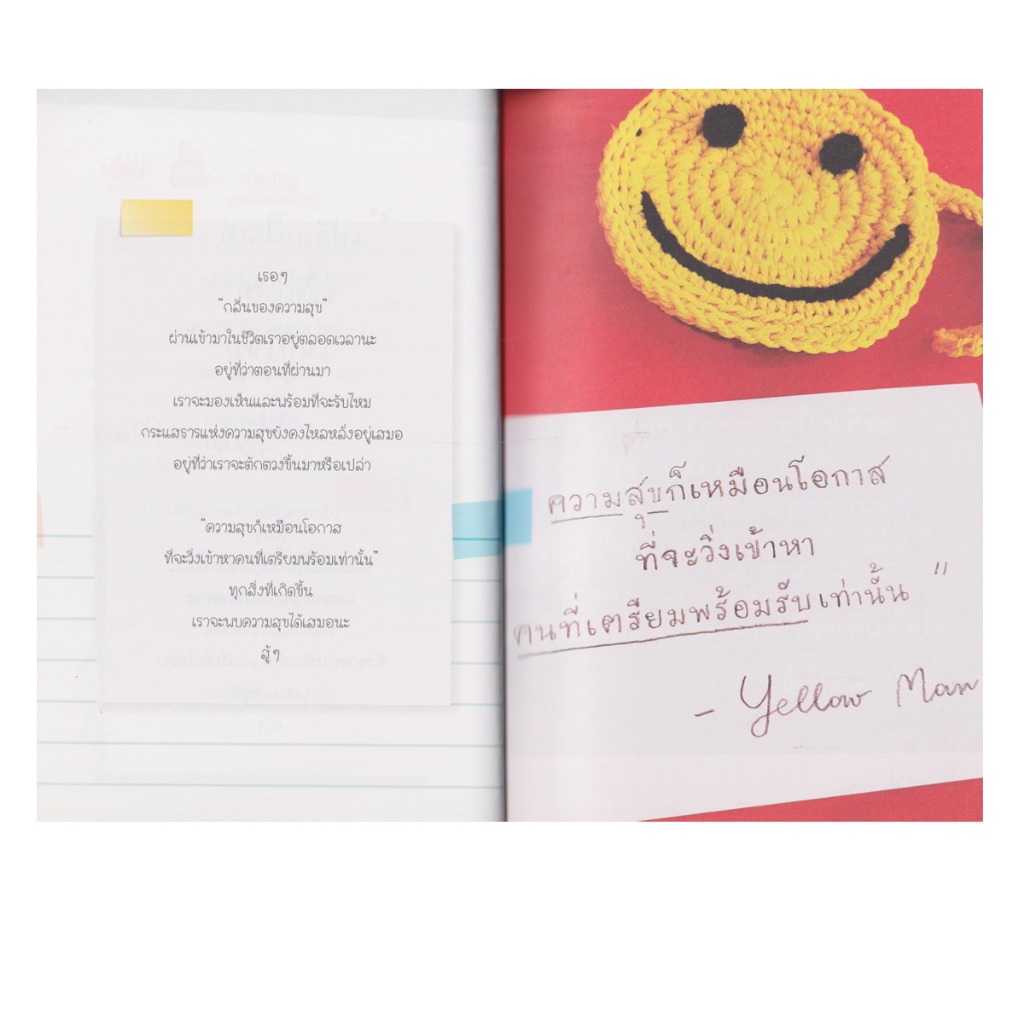 เธอๆ
"กลิ่นของความสุข"
ผ่านเข้ามาในชีวิตเราอยู่ตลอดเวลานะ
อยู่ที่ว่าตอนที่ผ่านมา
เราจะมองเห็นและพร้อมที่จะรับไหม
กระแสธารแห่งความสุขยังคงไหลหลั่งอยู่เสมอ
อยู่ที่ว่าเราจะตักตวงขึ้นมาหรือเปล่า
"ความสุขก็เหมือนโอกาส
ที่จะวิ่งเข้าหาคนที่เตรียมพร้อมเท่านั้น"
ทุกสิ่งที่เกิดขึ้น
เราจะพบความสุขได้เสมอนะ
สู้ๆ
ความสุขก็เหมือนโอกาส
ที่จะวิ่งเข้าหา
คนที่เตรียมพร้อมรับเท่านั้น"
- Yellow Man